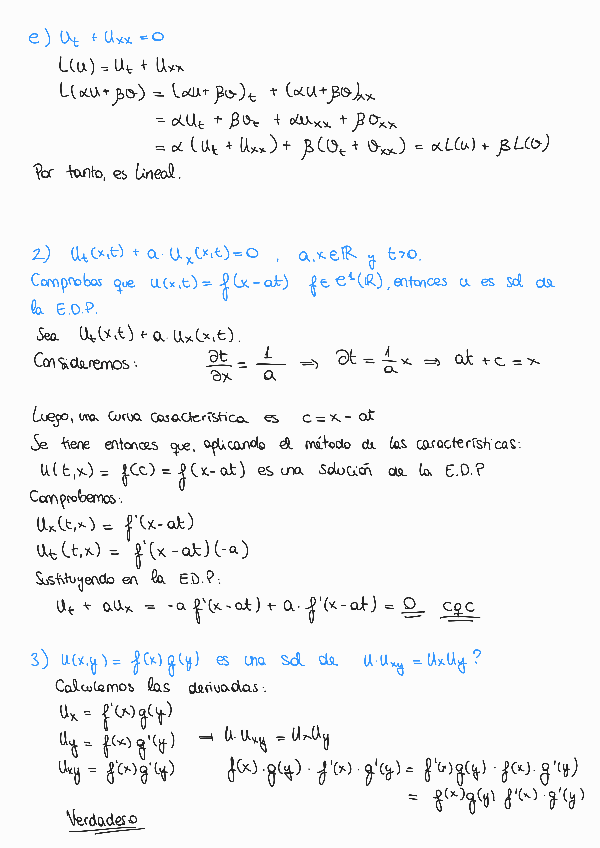 e) Ut + Uxx = 0
L(u) = Ut + Uxx
L(αu + βv) = (αu + βv)t + (αu + βv)xx
= αUt + βvt + αuxx + βvxx
= α(Ut + Uxx) + β(vt + vxx) = αL(u) + βL(v)
Por tanto, es lineal.
2) Ut(x,t) + a·Ux(x,t) = 0 , a,x∈ℝ y t>0.
Comprobar que u(x,t) = f(x-at) f∈C¹(ℝ), entonces u es sol de
la E.D.P.
Sea Ut(x,t) + a·Ux(x,t).
Consideremos: ∂t/∂x = 1/a ⇒ ∂t = 1/a x ⇒ at + c = x
Luego, una curva característica es c = x - at
Se tiene entonces que, aplicando el método de las características:
u(t,x) = f(c) = f(x-at) es una solución de la E.D.P
Comprobemos:
Ux(t,x) = f'(x-at)
Ut(t,x) = f'(x-at)(-a)
Sustituyendo en la E.D.P:
Ut + aUx = -a f'(x-at) + a·f'(x-at) = 0 cqc
3) u(x,y) = f(x)g(y) es una sol de u·uxy = uxuy?
Calculemos las derivadas:
Ux = f'(x)g(y)
Uy = f(x)g'(y) → U·Uxy = UxUy
Uxy = f'(x)g'(y) f(x)·g(y)·f'(x)·g'(y) = f'(x)g(y)·f(x)·g'(y)
= f(x)g(y) f'(x)·g'(y)
Verdadero